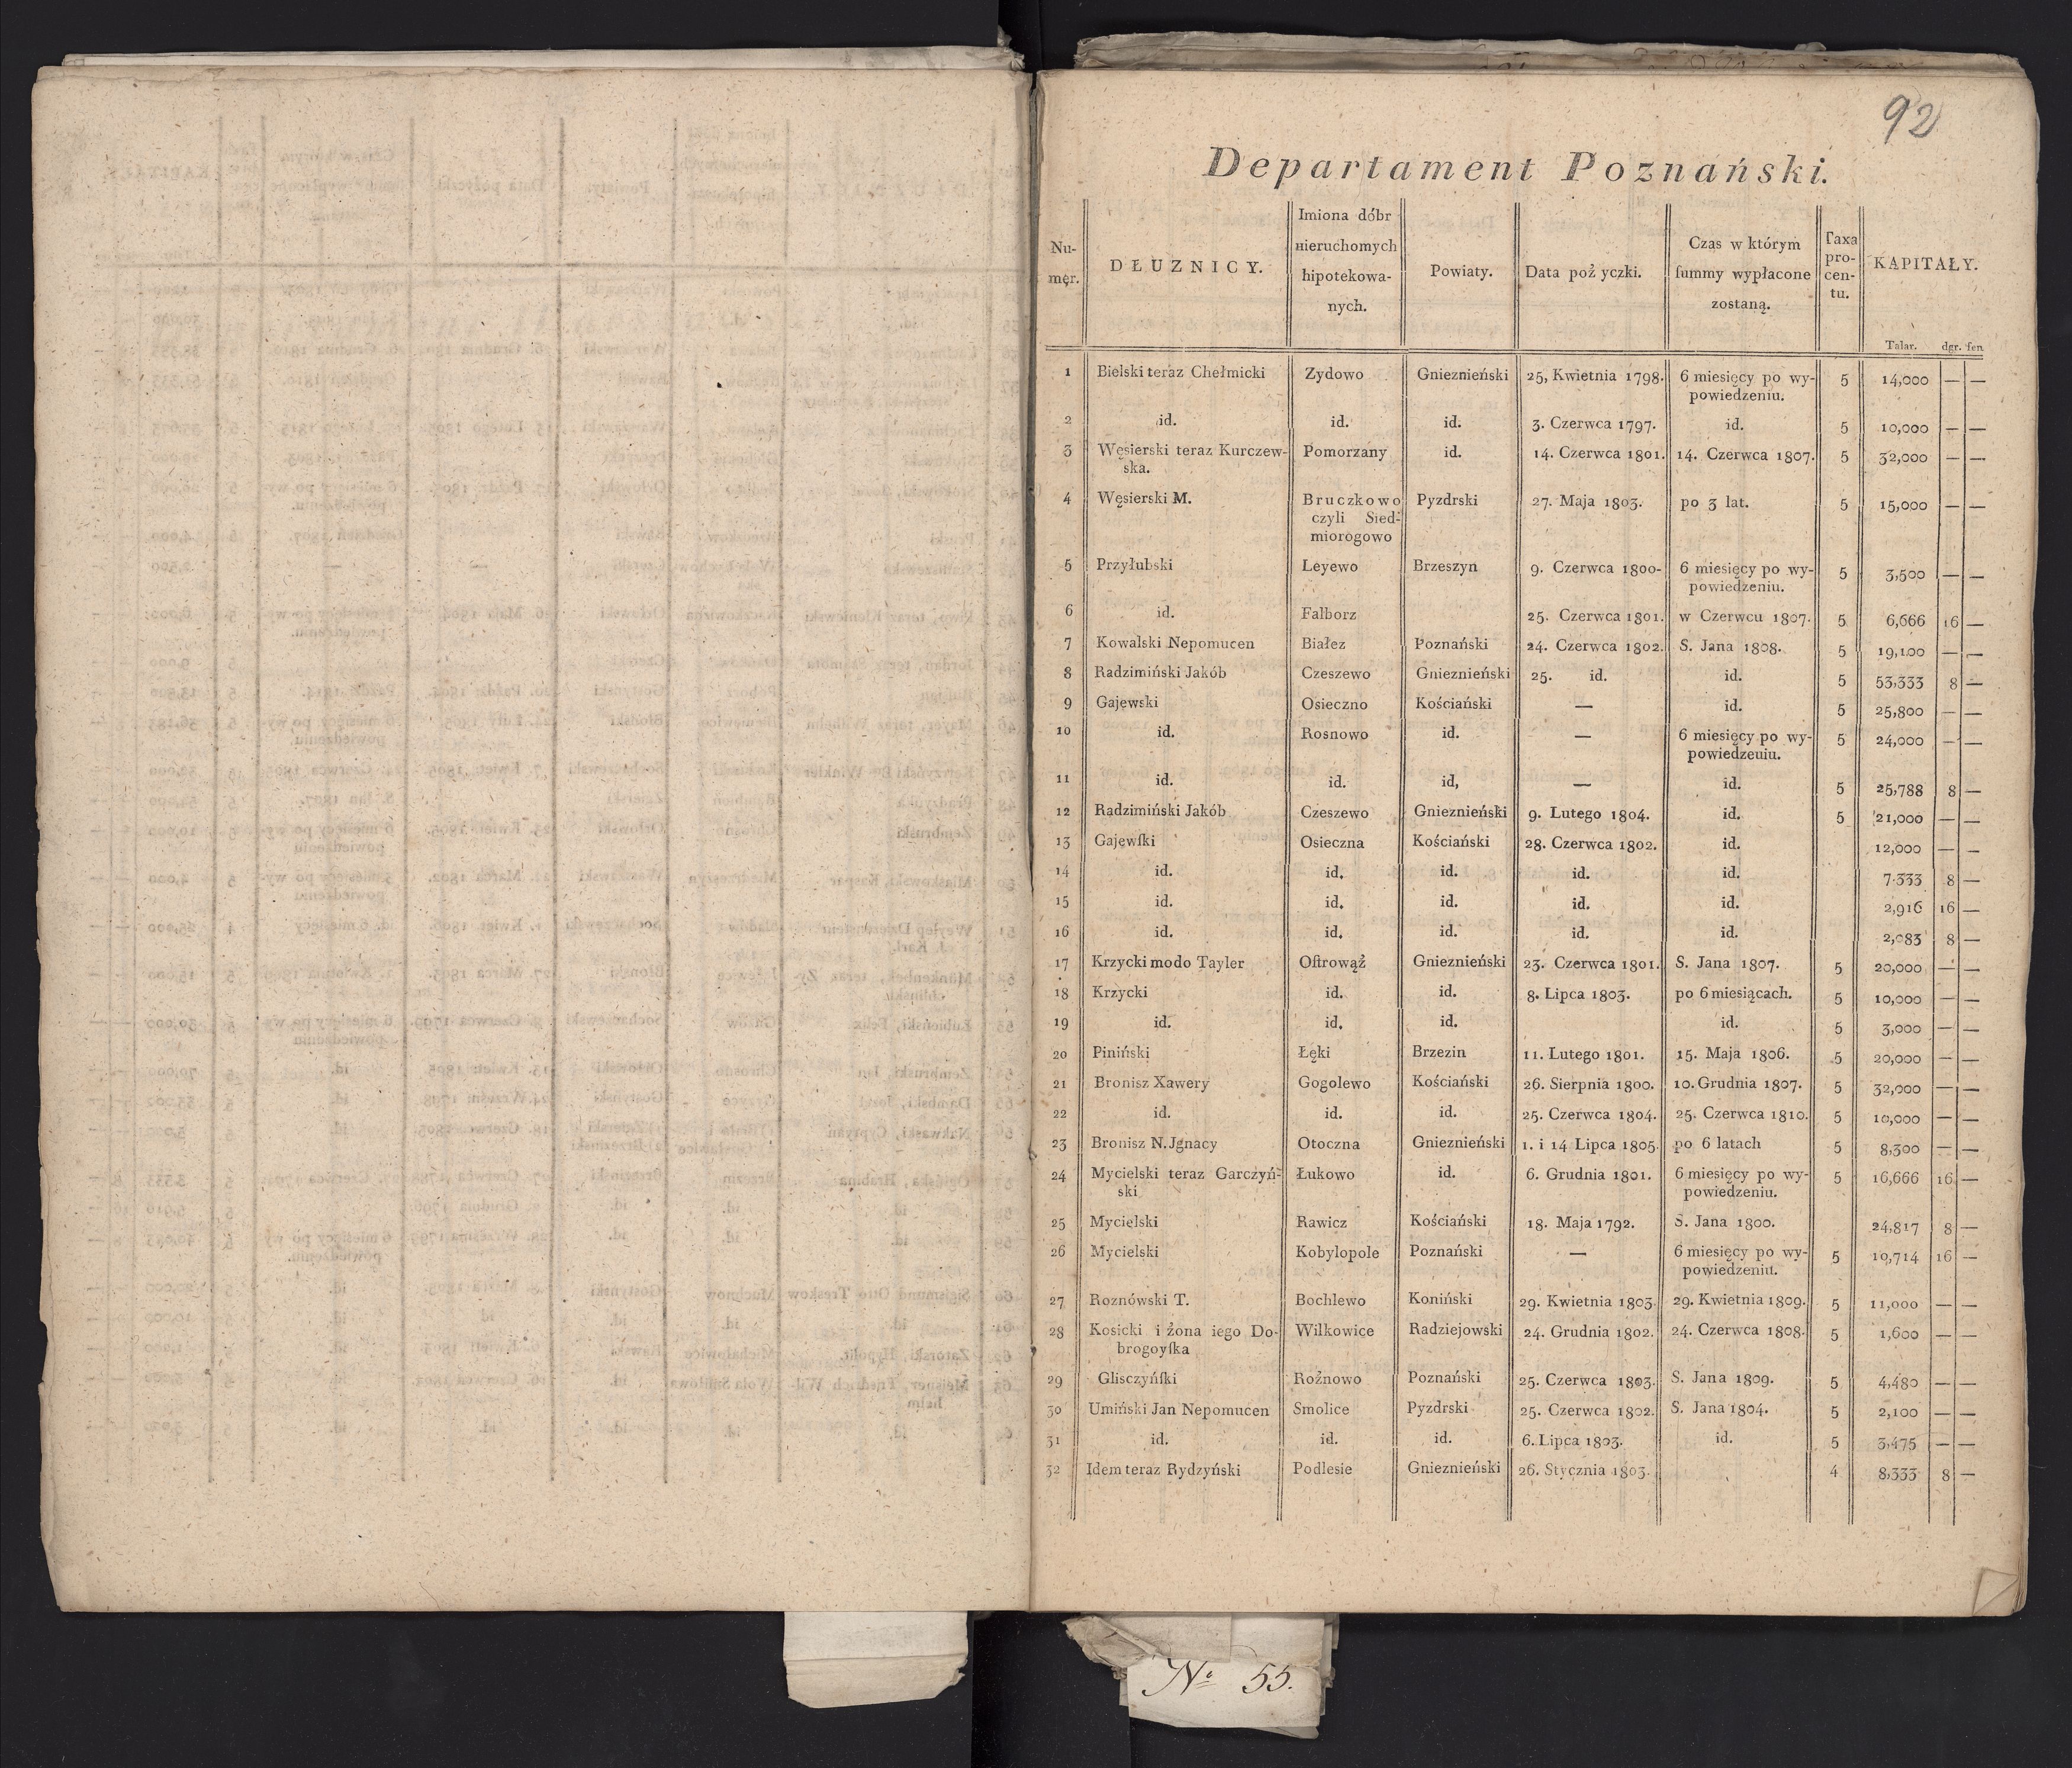 92
Departament Poznański.
Nu-
mer.
DŁUZNICY.
Imiona dóbr
nieruchomych
hipotekowa-
nych.
Powiaty.
Data poź yczki.
Czas w którym
ſummy wypłacone
zostaną.
Taxa
pro-
cen-
tu.
KAPITAŁY.
Talar. dgr. fen
1 Bielski teraz Chełmicki Zydowo Gnieznieński 25, Kwietnia 1798. 6 miesięcy po wy- 5 14,000 — —
powiedzeniu.
2 id. id. id. 3. Czerwca 1797. id. 5 10,000 — —
3 Węsierski teraz Kurczew- Pomorzany id. 14. Czerwca 1801. 14. Czerwca 1807. 5 32,000 — —
ska.
4 Węsierski M. Bruczkowo Pyzdrski 27. Maja 1803. po 3 lat. 5 15,000 — —
czyli Sied-
miorogowo
5 Przyłubski Leyewo Brzeszyn 9. Czerwca 1800- 6 miesięcy po wy- 5 3,500 — —
powiedzeniu.
6 id. Falborz 25. Czerwca 1801. w Czerwcu 1807. 5 6,666 16 —
7 Kowalski Nepomucen Białez Poznański 24. Czerwca 1802. S. Jana 1808. 5 19,100 — —
8 Radzimiński Jakób Czeszewo Gnieznieński 25. id. id. 5 53,333 8 —
9 Gajewski Osieczno Kościański — id. 5 25,800 — —
10 id. Rosnowo id. — 6 miesięcy po wy- 5 24,000 — —
powiedzeuiu.
11 id. id. id, — id. 5 25,788 8 —
12 Radzimiński Jakób Czeszewo Gnieznieński 9. Lutego 1804. id. 5 21,000 — —
13 Gajewſki Osieczna Kościański 28. Czerwca 1802. id. 12,000 — —
14 id. id. id. id. id. 7.333 8 —
15 id. id. id. id. id. 2,916 16 —
16 id. id. id. id. id. 2,083 8 —
17 Krzycki modo Tayler Oſtrowąź Gnieznieński 23. Czerwca 1801. S. Jana 1807. 5 20,000 — —
18 Krzycki id. id. 8. Lipca 1803. po 6 miesiącach. 5 10,000 — —
19 id. id. id. id. 5 3,000 — —
20 Piniński Łęki Brzezin 11. Lutego 1801. 15. Maja 1806. 5 20,000 — —
21 Bronisz Xawery Gogolewo Kościański 26. Sierpnia 1800. 10. Grudnia 1807. 5 32,000 — —
22 id. id. id. 25. Czerwca 1804. 25. Czerwca 1810. 5 10,000 — —
23 Bronisz N. Jgnacy Otoczna Gnieznieński 1. i 14 Lipca 1805. po 6 latach 5 8,300 — —
24 Mycielski teraz Garczyń- Łukowo id. 6. Grudnia 1801. 6 miesięcy po wy- 5 16,666 16 —
ski powiedzeniu.
25 Mycielski Rawicz Kościański 18. Maja 1792. S. Jana 1800. 24,817 8 —
26 Mycielski Kobylopole Poznański — 6 miesięcy po wy- 5 10,714 16 —
powiedzeniu.
27 Roznówski T. Bochlewo Koniński 29. Kwietnia 1803. 29. Kwietnia 1809. 5 11,000 — —
28 Kosicki i żona iego Do- Wilkowice Radziejowski 24. Grudnia 1802. 24. Czerwca 1808. 5 1,600 — —
brogoyſka
29 Glisczyńſki Roźnowo Poznański 25. Czerwca 1803. S. Jana 1809. 5 4,480 — —
30 Umiński Jan Nepomucen Smolice Pyzdrski 25. Czerwca 1802. S. Jana 1804. 5 2,100 — —
31 id. id. id. 6. Lipca 1803. id. 5 3,475 — —
32 Idem teraz Rydzyński Podlesie Gnieznieński 26. Stycznia 1803. 4 8,333 8 —
No 55.